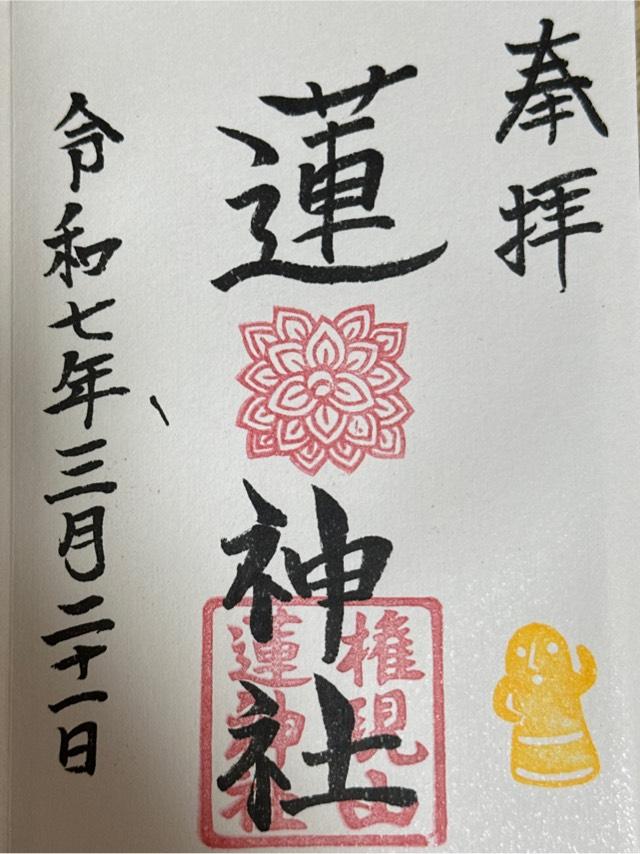 奉拝
蓮神社
権現山
蓮神社
令和七年三月二十一日